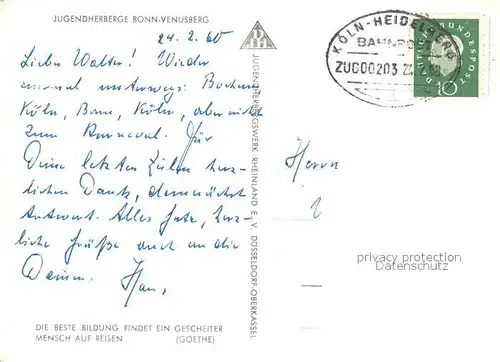 JUGENDHERBERGE BONN-VENUSBERG
24.2.60
Lieber Walter! Wieder
einmal unterwegs: Bochum
Köln, Bonn, Köln, aber nicht
zum Karneval. Für
Deine letzten Zeilen herz-
lichen Dank, demnächst
Antwort. Alles Gute, herz-
liche Grüße auch an die
Damen.
DIE BESTE BILDUNG FINDET EIN GESCHEITER
MENSCH AUF REISEN (GOETHE)
JUGENDHERBERGSWERK RHEINLAND E. V. DÜSSELDORF-OBERKASSEL
KÖLN-HEIDELBERG
BAHNPOST
ZUG00203
BUNDESPOST
10
Herrn
privacy protection
Datenschutz